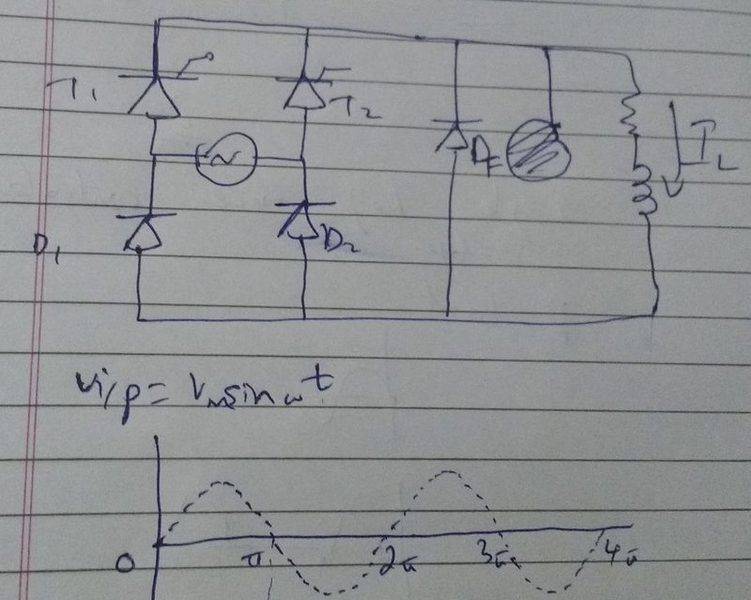 T1
T2
DF
IL
D1
D2
Vi/p = Vm sin ωt
0 π 2π 3π 4π